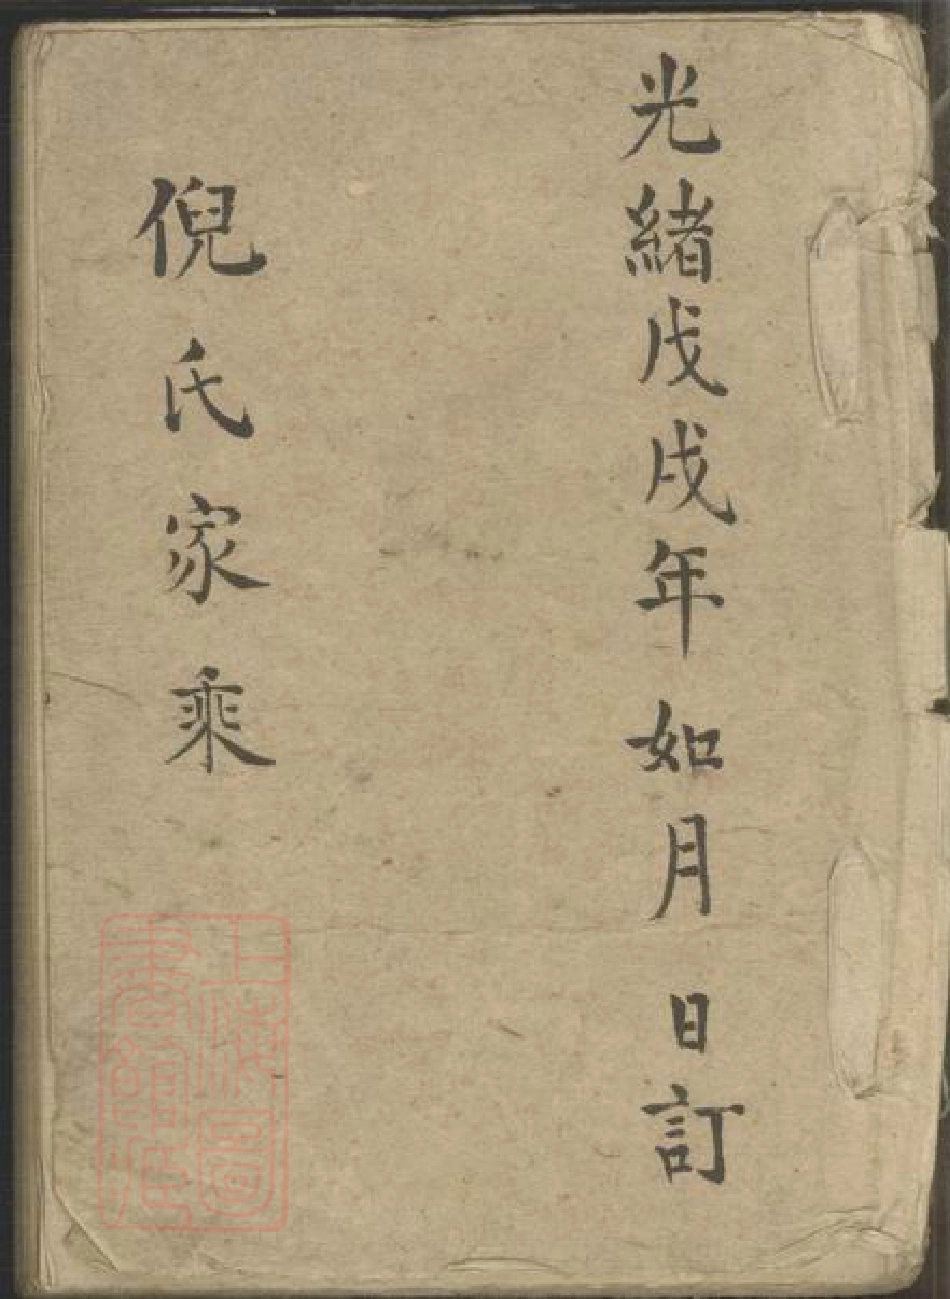 光緒戊戌年如月 日訂
倪氏家乘
上海圖
書館藏